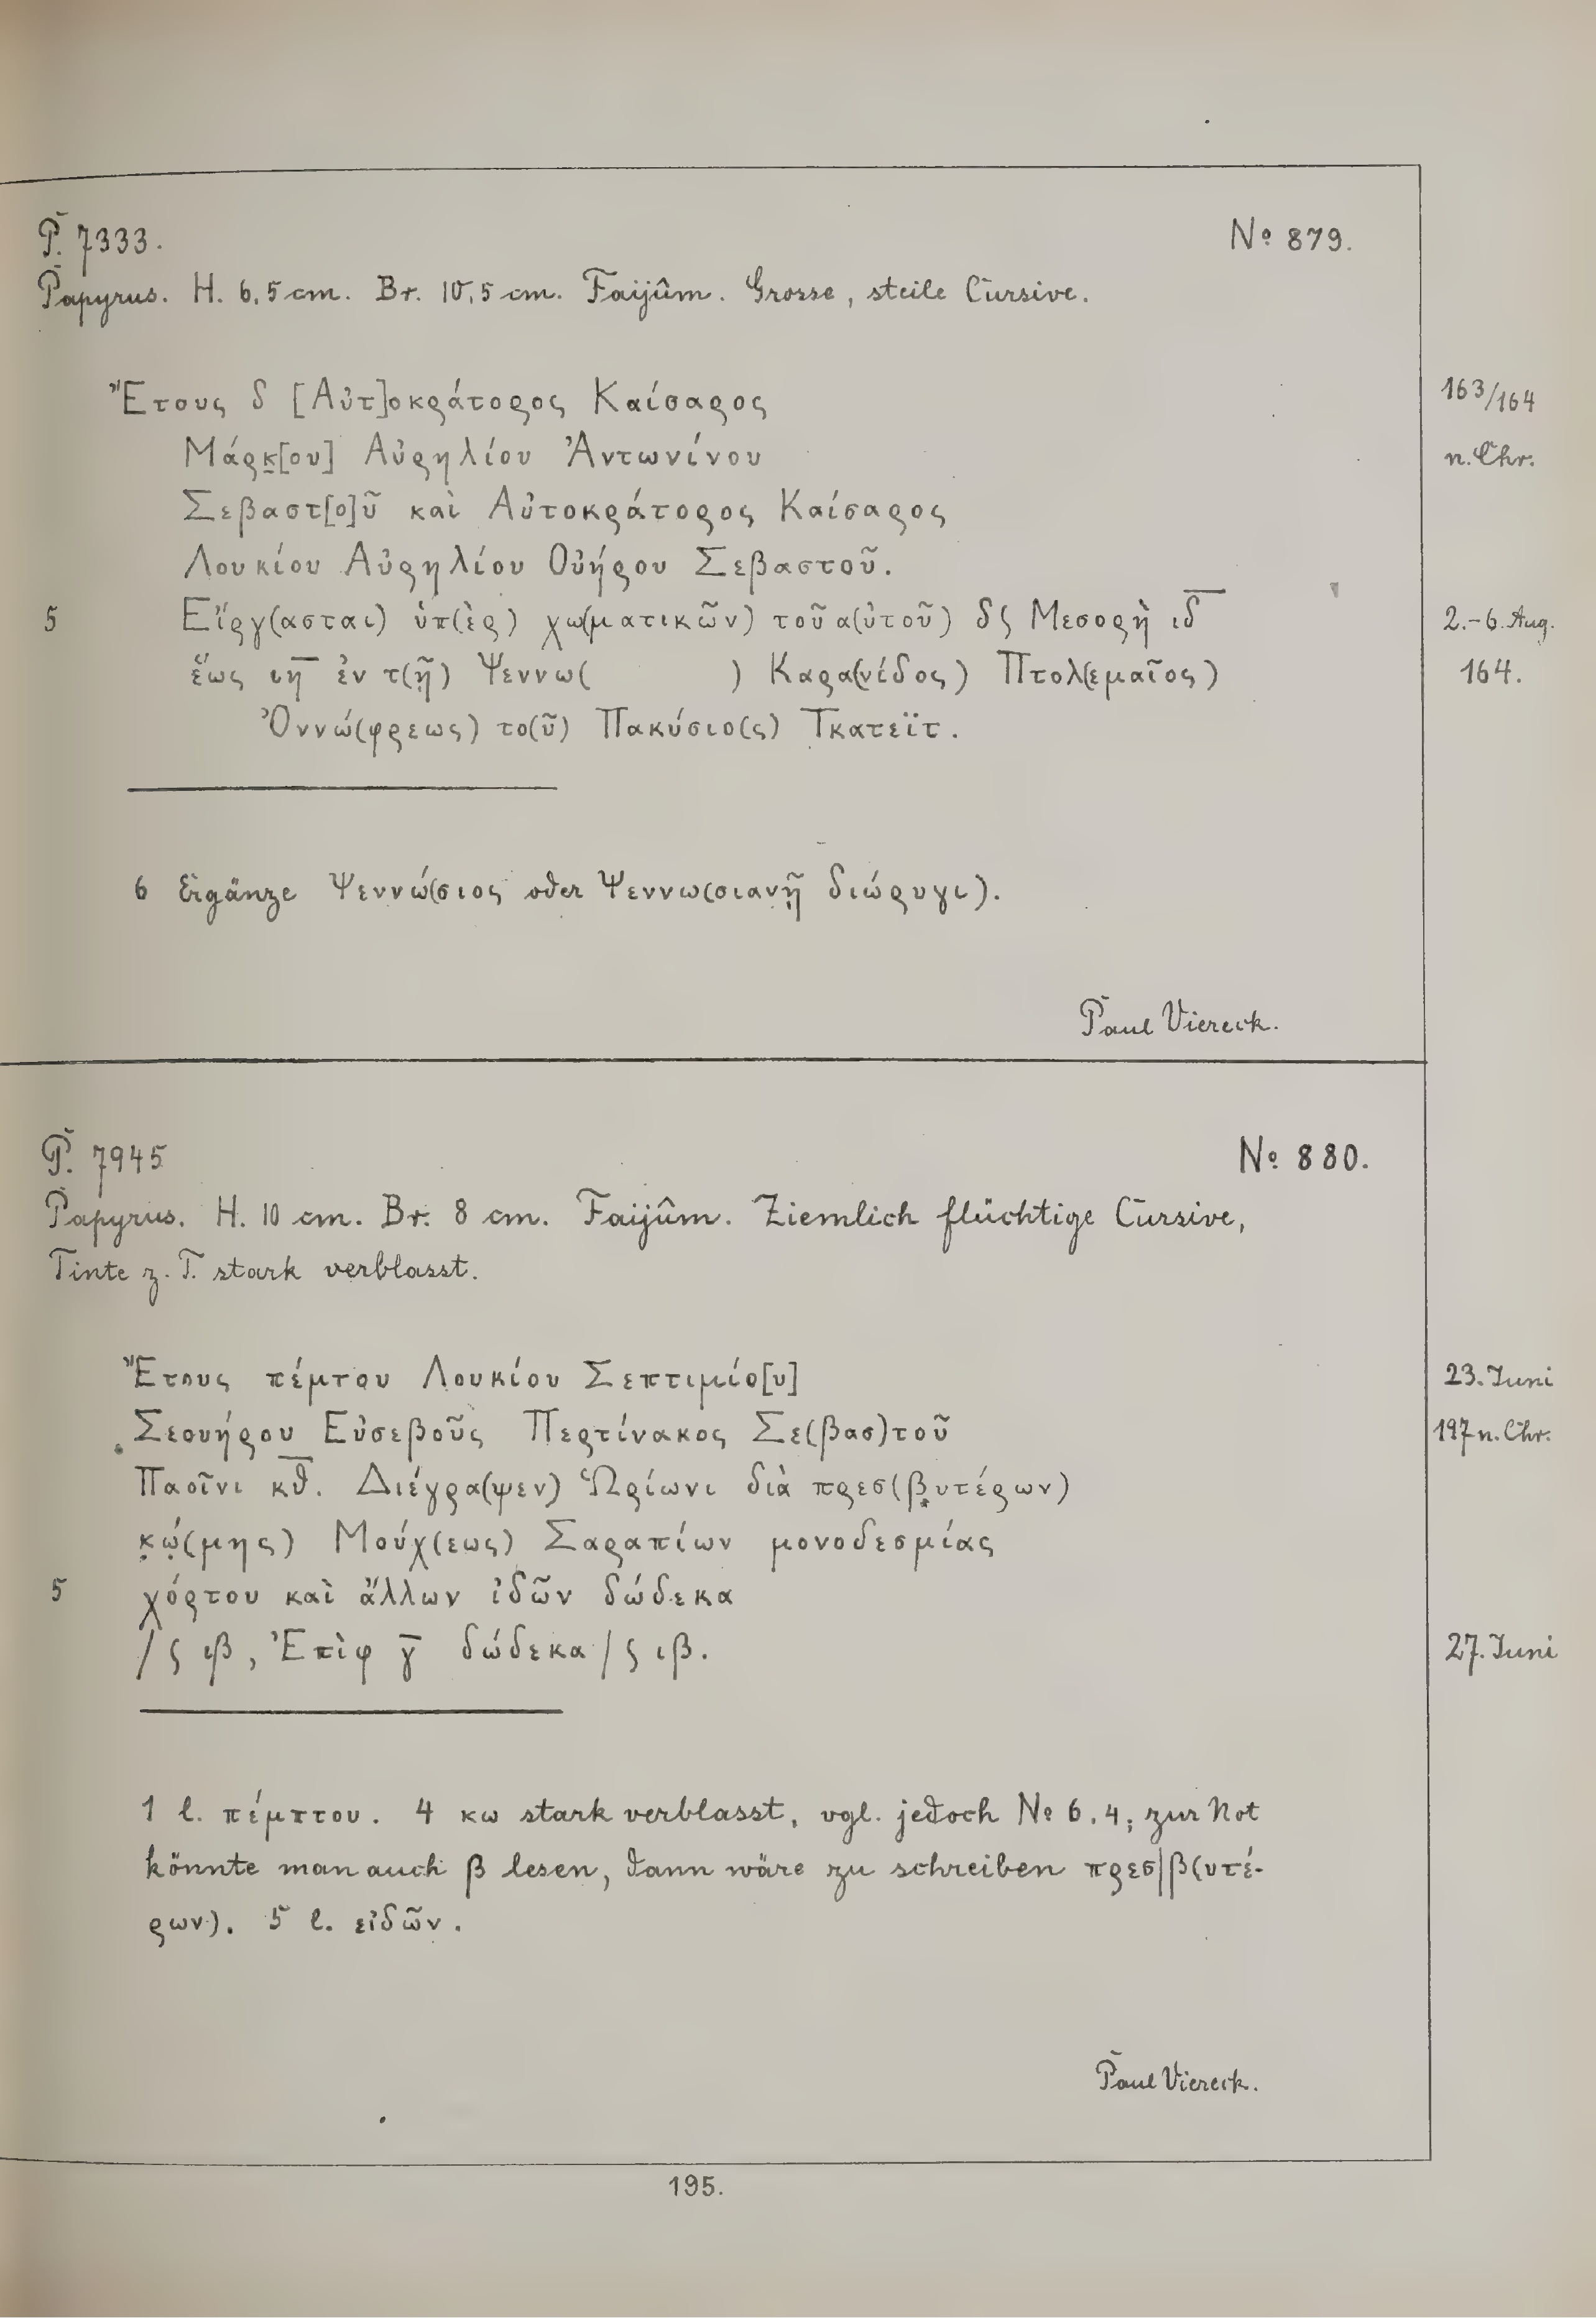 P. 7333.
No 879.
Papyrus. H. 6,5 cm. Br. 10,5 cm. Faijûm. Grosse, steile Cursive.
Ἔτους δ [Αὐτ]οκράτορος Καίσαρος
163/164
Μάρκ̣[ου] Αὐρηλίου Ἀντωνίνου
n. Chr.
Σεβαστ[ο]ῦ καὶ Αὐτοκράτορος Καίσαρος
Λουκίου Αὐρηλίου Οὐήρου Σεβαστοῦ.
5 Εἴργ(ασται) ὑπ(ὲρ) χω(ματικῶν) τοῦ α(ὐτοῦ) δϛ Μεσορὴ ιδ̅
2.-6. Aug.
ἕως ιη̅ ἐν τ(ῇ) Ψεννω( ) Καρα(νίδος) Πτολ(εμαῖος)
164.
Ὀννώ(φρεως) το(ῦ) Πακύσιο(ς) Τκατεϊτ.
6 Ergänze Ψεννώ(σιος oder Ψεννω(σιανῇ διώρυγι).
Paul Viereck.
P. 7945
No 880.
Papyrus. H. 10 cm. Br. 8 cm. Faijûm. Ziemlich flüchtige Cursive,
Tinte z. T. stark verblasst.
Ἔτους πέμτου Λουκίου Σεπτιμίο[υ]
23. Juni
Σεουήρου Εὐσεβοῦς Περτίνακος Σε(βασ)τοῦ
197 n. Chr.
Παοῖνι κθ̅. Διέγρα(ψεν) Ὡρίωνι διὰ πρεσ(β̣υτέρων)
κ̣ώ̣(μης) Μούχ(εως) Σαραπίων μονοδεσμίας
5 χόρτου καὶ ἄλλων ἰδῶν δώδεκα
/ϛ ιβ, Ἐπὶφ γ̅ δώδεκα /ϛ ιβ.
27. Juni
1 l. πέμπτου. 4 κω stark verblasst, vgl. jedoch No 6,4; zur Not
könnte man auch β lesen, dann wäre zu schreiben πρεσ|β(υτέ-
ρων). 5 l. εἰδῶν.
Paul Viereck.
195.